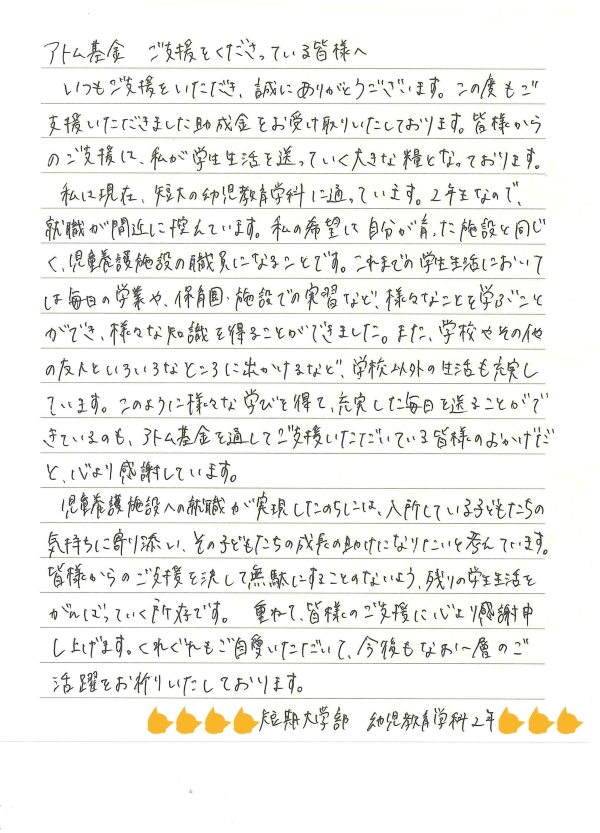 アトム基金　ご支援をくださっている皆様へ
いつもご支援をいただき、誠にありがとうございます。この度もご
支援いただきました助成金をお受け取りいたしております。皆様から
のご支援は、私が学生生活を送っていく大きな糧となっております。
私は現在、短大の幼児教育学科に通っています。2年生なので、
就職が間近に控えています。私の希望は自分が育った施設と同じ
く、児童養護施設の職員になることです。これまでの学生生活において
は毎日の学業や、保育園・施設での実習など、様々なことを学ぶこと
ができ、様々な知識を得ることができました。また、学校やその他
の友人といろいろなところに出かけるなど、学校以外の生活も充実し
ています。このように様々な学びを得て、充実した毎日を送ることがで
きているのも、アトム基金を通してご支援いただいている皆様のおかげだ
と、心より感謝しています。
児童養護施設への就職が実現したのちには、入所している子どもたちの
気持ちに寄り添い、その子どもたちの成長の助けになりたいと考えています。
皆様からのご支援を決して無駄にすることのないよう、残りの学生生活を
がんばっていく所存です。　重ねて、皆様のご支援に心より感謝申
し上げます。くれぐれもご自愛いただいて、今後もなお一層のご
活躍をお祈りいたしております。
短期大学部　幼児教育学科2年